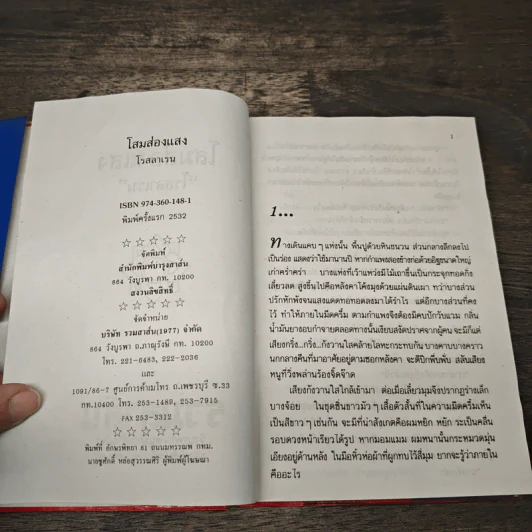 โสมส่องแสง
โรสลาเรน
ISBN 974-360-148-1
พิมพ์ครั้งแรก 2532
☆ ☆ ☆ ☆ ☆
จัดพิมพ์
สำนักพิมพ์บำรุงสาส์น
864 วังบูรพา กท. 10200
สงวนลิขสิทธิ์
☆ ☆ ☆ ☆ ☆
จัดจำหน่าย
บริษัท รวมสาส์น (1977) จำกัด
864 วังบูรพา ถ.ภาณุรังษี กท. 10200
โทร. 221-6483, 222-2036
และ
1091/86-7 ศูนย์การค้าเมโทร ถ.เพชรบุรี ซ.33
กท.10400 โทร. 253-1489, 253-7915
FAX 253-3312
☆ ☆ ☆ ☆ ☆
พิมพ์ที่ อักษรพิทยา 81 ถนนมหรรณพ กทม.
นายชูศักดิ์ หล่อสุวรรณศิริ ผู้พิมพ์ผู้โฆษณา
1
1...
ทางเดินแคบ ๆ แห่งนั้น พื้นปูด้วยหินชนวน ส่วนกลางลึกลงไป
เป็นร่อง แสดงว่าใช้มานานปี หากกำแพงสองข้างก่อด้วยอิฐขนาดใหญ่
เก่าคร่ำคร่า บางแห่งที่เว้าแหว่งมีไม้เถาขึ้นเป็นกระจุกทอดกิ่ง
เลี้ยวลด สูงขึ้นไปคือหลังคาโค้งมุงด้วยแผ่นดินเผา ทว่าบางส่วน
ปรักหักพังจนแสงแดดทอดลงมาได้รำไร แต่อีกบางส่วนที่คง
ไว้ ทำให้ภายในมืดครึ้ม ตามกำแพงจึงต้องมีคบปักวับแวม กลิ่น
น้ำมันยางอบกำจายตลอดทางนั้นเงียบสงัดปราศจากผู้คน จะมีก็แต่
เสียงกริ่ง...กริ่ง...กังวานใสคล้ายโลหะกระทบกัน บางคาบบางคราว
นกกลางคืนที่มาอาศัยอยู่ตามซอกหลังคา จะตีปีกพึ่บพั่บ สลับเสียง
หนูที่วิ่งพล่านร้องจี๊ดจ๊าด
เสียงกังวานใสใกล้เข้ามา ต่อเมื่อเลี้ยวมุมจึงปรากฏร่างเล็ก
บางจ้อย ในชุดซิ่นขาวมัว ๆ เสื้อตัวสั้นที่ในความมืดครึ้มเห็น
เป็นสีขาว ๆ เช่นกัน จะมีที่น่าสังเกตคือผมหยิก หยิก ระเป็นคลื่น
รอบดวงหน้าเรียวได้รูป หากมอมแมม ผมหนานั้นกระหมวดมุ่น
เอียงอยู่ด้านหลัง ในมือหิ้วห่อผ้าที่ผูกทบไว้สี่มุม ยากจะรู้ว่าภายใน
คืออะไร